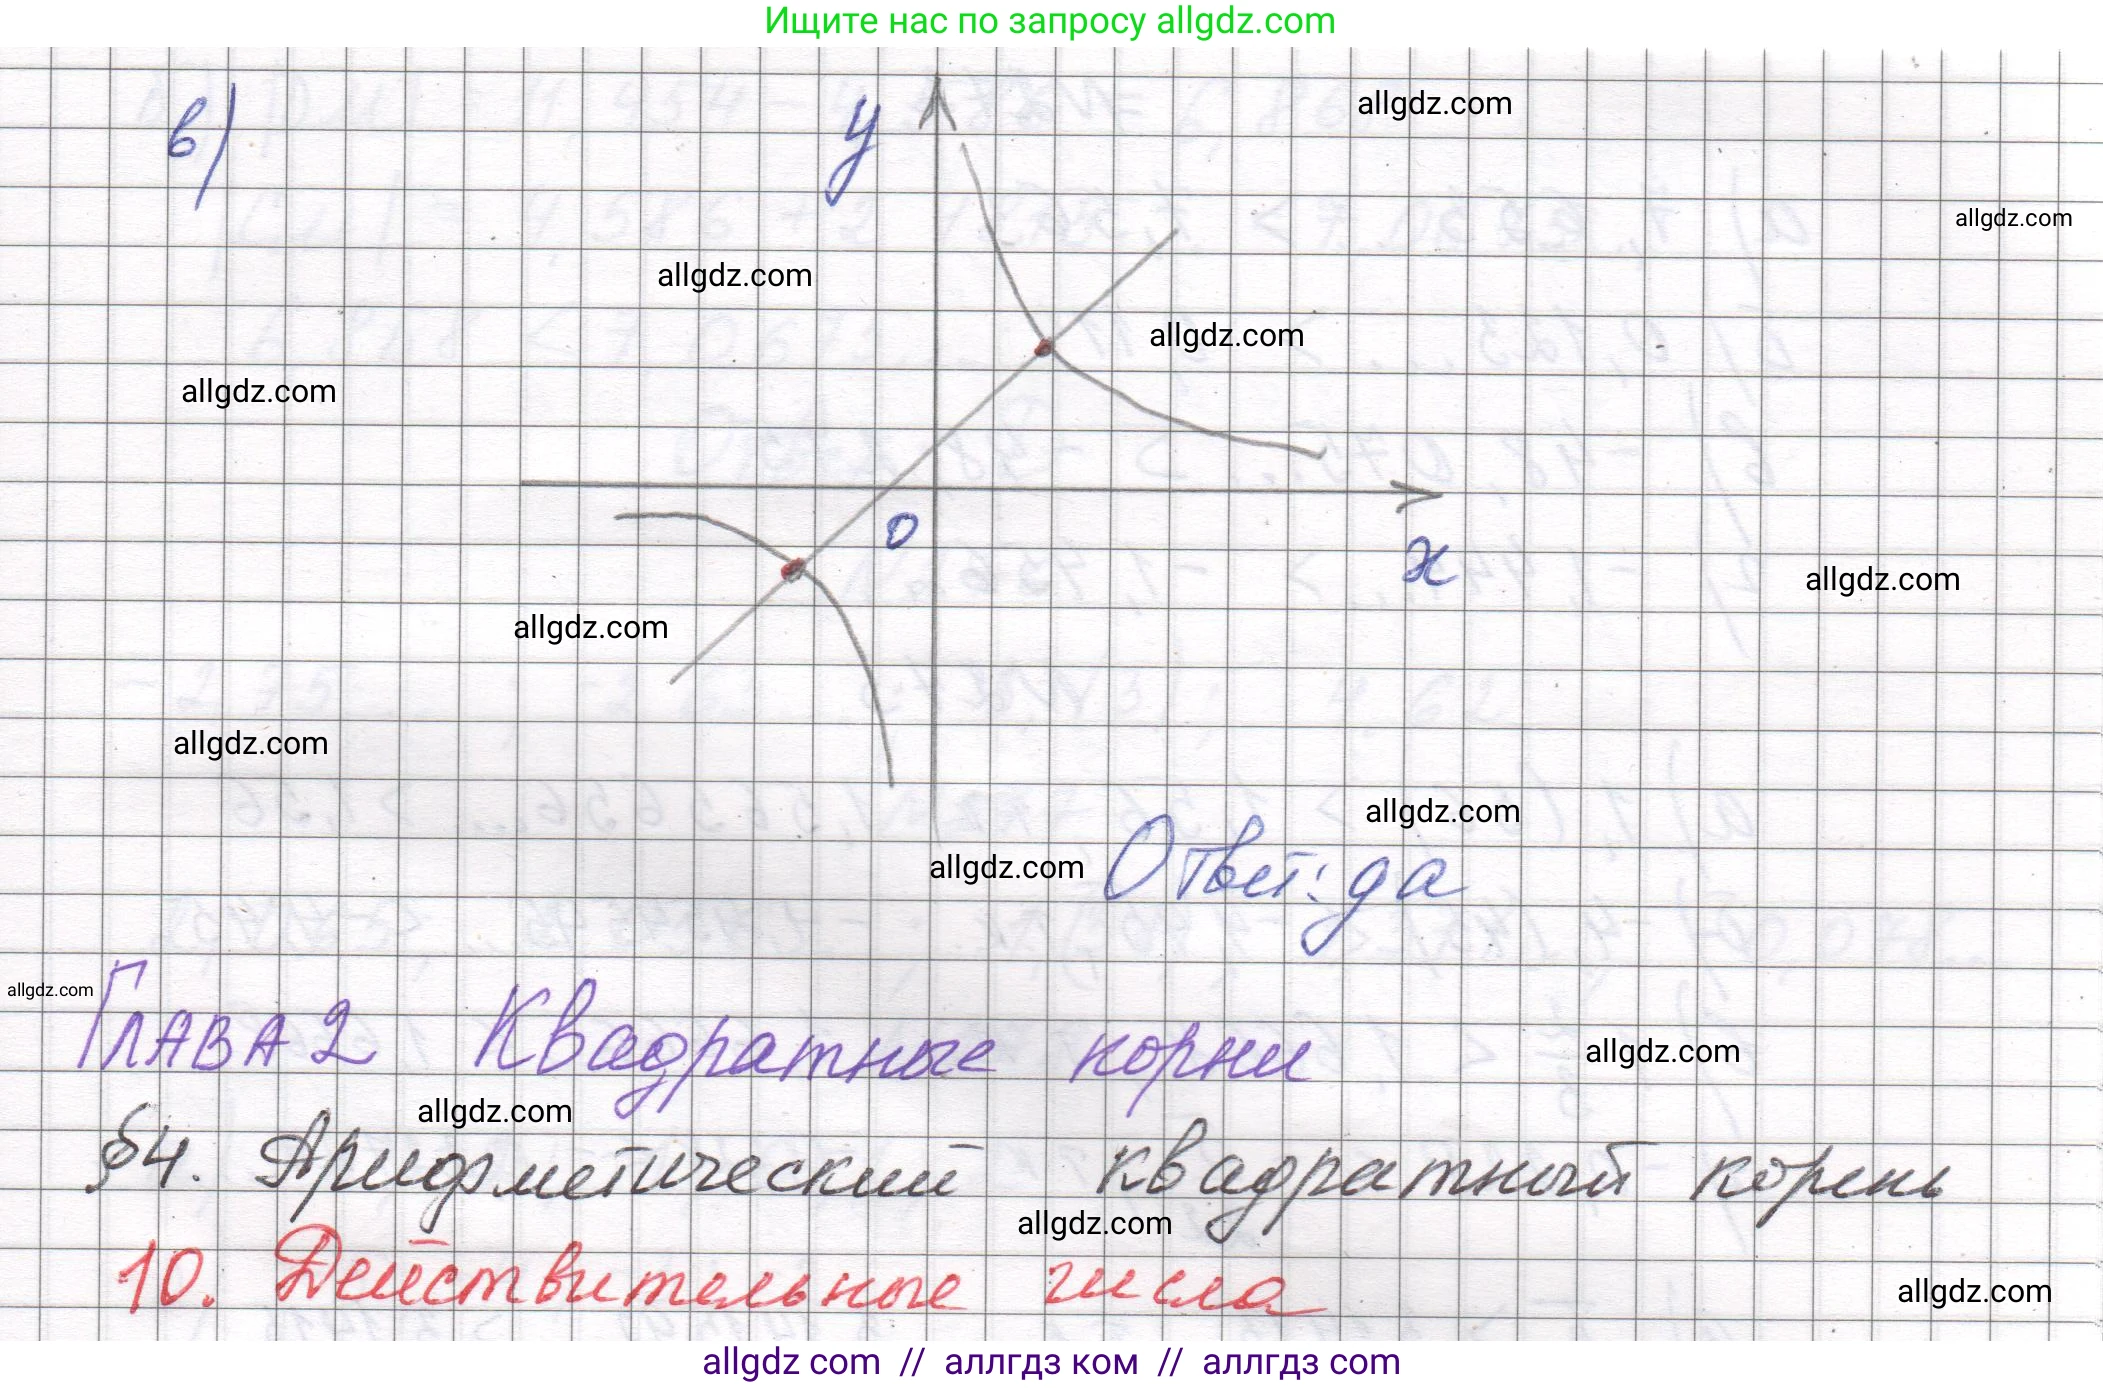 Ищите нас по запросу allgdz.com
в)
y
allgdz.com
allgdz.com
allgdz.com
allgdz.com
allgdz.com
0
x
allgdz.com
allgdz.com
allgdz.com
allgdz.com
allgdz.com
Ответ: да
allgdz.com
Глава 2 Квадратные корни
allgdz.com
allgdz.com
§4. Арифметический квадратный корень
allgdz.com
10. Действительные числа
allgdz.com
allgdz com // аллгдз ком // аллгдз com